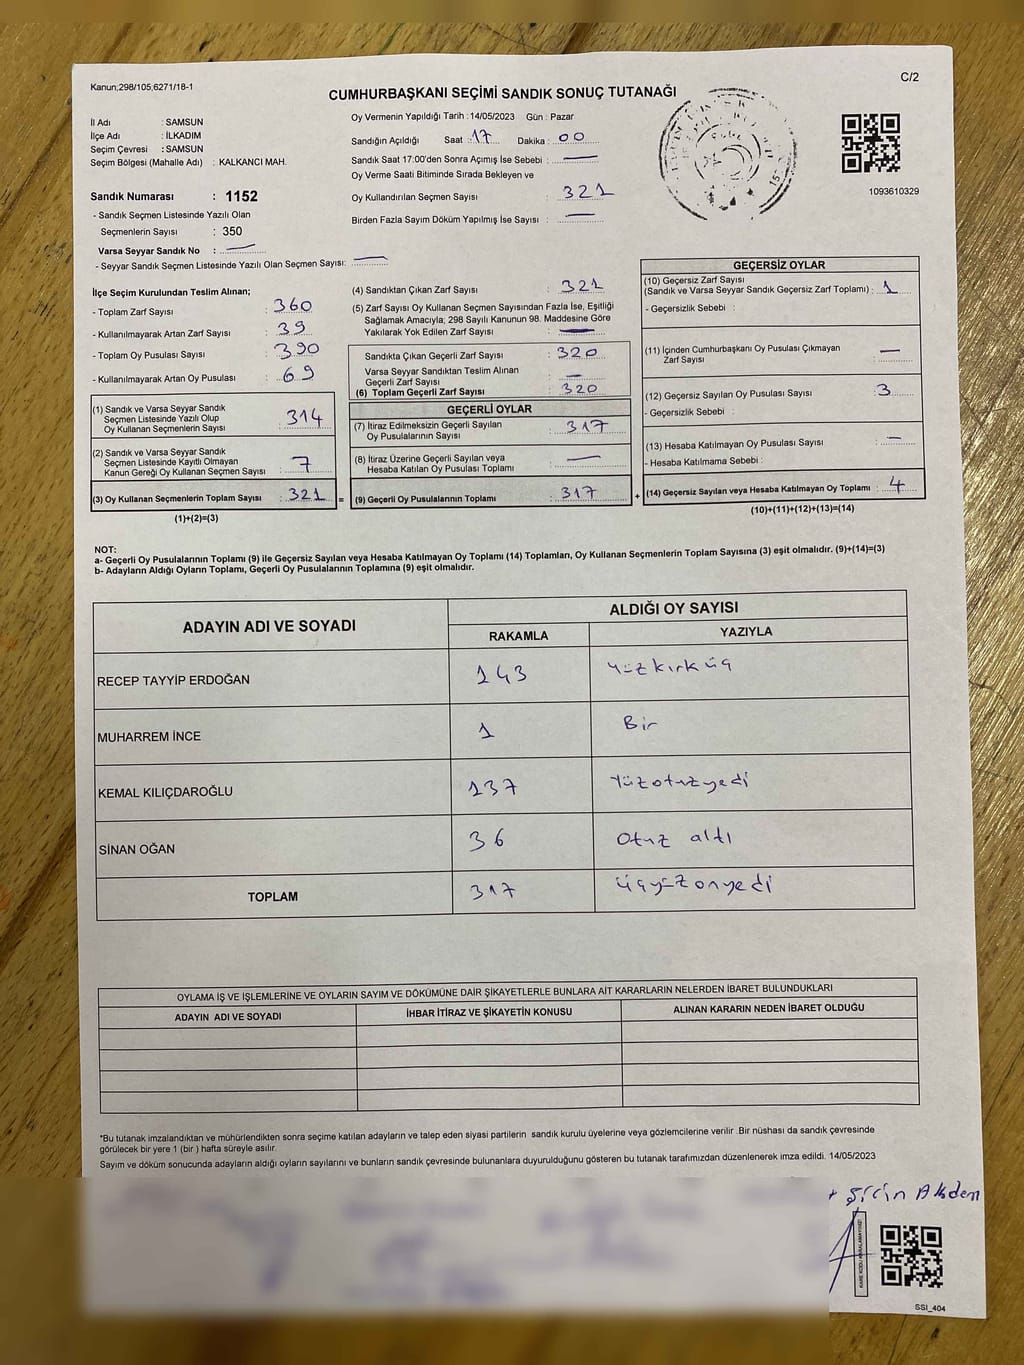 Kanun;298/105;6271/18-1
C/2
CUMHURBAŞKANI SEÇİMİ SANDIK SONUÇ TUTANAĞI
İl Adı : SAMSUN
İlçe Adı : İLKADIM
Seçim Çevresi : SAMSUN
Seçim Bölgesi (Mahalle Adı) : KALKANCI MAH.
Sandık Numarası : 1152
- Sandık Seçmen Listesinde Yazılı Olan
Seçmenlerin Sayısı : 350
Varsa Seyyar Sandık No : —
- Seyyar Sandık Seçmen Listesinde Yazılı Olan Seçmen Sayısı: —
Oy Vermenin Yapıldığı Tarih :14/05/2023 Gün : Pazar
Sandığın Açıldığı Saat : 17 Dakika : 00
Sandık Saat 17:00'den Sonra Açımış İse Sebebi : —
Oy Verme Saati Bitiminde Sırada Bekleyen ve
Oy Kullandırılan Seçmen Sayısı : 321
Birden Fazla Sayım Döküm Yapılmış İse Sayısı : —
1093610329
İlçe Seçim Kurulundan Teslim Alınan;
- Toplam Zarf Sayısı : 360
- Kullanılmayarak Artan Zarf Sayısı : 39
- Toplam Oy Pusulası Sayısı : 390
- Kullanılmayarak Artan Oy Pusulası : 69
(1) Sandık ve Varsa Seyyar Sandık
Seçmen Listesinde Yazılı Olup
Oy Kullanan Seçmenlerin Sayısı : 314
(2) Sandık ve Varsa Seyyar Sandık
Seçmen Listesinde Kayıtlı Olmayan
Kanun Gereği Oy Kullanan Seçmen Sayısı : 7
(3) Oy Kullanan Seçmenlerin Toplam Sayısı : 321 =
(1)+(2)=(3)
(4) Sandıktan Çıkan Zarf Sayısı : 321
(5) Zarf Sayısı Oy Kullanan Seçmen Sayısından Fazla İse, Eşitliği
Sağlamak Amacıyla; 298 Sayılı Kanunun 98. Maddesine Göre
Yakılarak Yok Edilen Zarf Sayısı : —
Sandıkta Çıkan Geçerli Zarf Sayısı : 320
Varsa Seyyar Sandıktan Teslim Alınan
Geçerli Zarf Sayısı : —
(6) Toplam Geçerli Zarf Sayısı : 320
GEÇERLİ OYLAR
(7) İtiraz Edilmeksizin Geçerli Sayılan
Oy Pusulalarının Sayısı : 317
(8) İtiraz Üzerine Geçerli Sayılan veya
Hesaba Katılan Oy Pusulası Toplamı : —
(9) Geçerli Oy Pusulalarının Toplamı : 317 +
GEÇERSİZ OYLAR
(10) Geçersiz Zarf Sayısı
(Sandık ve Varsa Seyyar Sandık Geçersiz Zarf Toplamı) : 1
- Geçersizlik Sebebi :
(11) İçinden Cumhurbaşkanı Oy Pusulası Çıkmayan
Zarf Sayısı : —
(12) Geçersiz Sayılan Oy Pusulası Sayısı : 3
- Geçersizlik Sebebi :
(13) Hesaba Katılmayan Oy Pusulası Sayısı : —
- Hesaba Katılmama Sebebi :
(14) Geçersiz Sayılan veya Hesaba Katılmayan Oy Toplamı : 4
(10)+(11)+(12)+(13)=(14)
NOT:
a- Geçerli Oy Pusulalarının Toplamı (9) ile Geçersiz Sayılan veya Hesaba Katılmayan Oy Toplamı (14) Toplamları, Oy Kullanan Seçmenlerin Toplam Sayısına (3) eşit olmalıdır. (9)+(14)=(3)
b- Adayların Aldığı Oyların Toplamı, Geçerli Oy Pusulalarının Toplamına (9) eşit olmalıdır.
ADAYIN ADI VE SOYADI ALDIĞI OY SAYISI
RAKAMLA YAZIYLA
RECEP TAYYİP ERDOĞAN 143 Yüzkırküç
MUHARREM İNCE 1 Bir
KEMAL KILIÇDAROĞLU 137 Yüzotuzyedi
SİNAN OĞAN 36 Otuz altı
TOPLAM 317 üçyüzonyedi
OYLAMA İŞ VE İŞLEMLERİNE VE OYLARIN SAYIM VE DÖKÜMÜNE DAİR ŞİKAYETLERLE BUNLARA AİT KARARLARIN NELERDEN İBARET BULUNDUKLARI
ADAYIN ADI VE SOYADI İHBAR İTİRAZ VE ŞİKAYETİN KONUSU ALINAN KARARIN NEDEN İBARET OLDUĞU
*Bu tutanak imzalandıktan ve mühürlendikten sonra seçime katılan adayların ve talep eden siyasi partilerin sandık kurulu üyelerine veya gözlemcilerine verilir .Bir nüshası da sandık çevresinde
görülecek bir yere 1 (bir ) hafta süreyle asılır.
Sayım ve döküm sonucunda adayların aldığı oyların sayılarını ve bunların sandık çevresinde bulunanlara duyurulduğunu gösteren bu tutanak tarafımızdan düzenlenerek imza edildi. 14/05/2023
KARE KODU KARALAMAYINIZ!
SSI_404